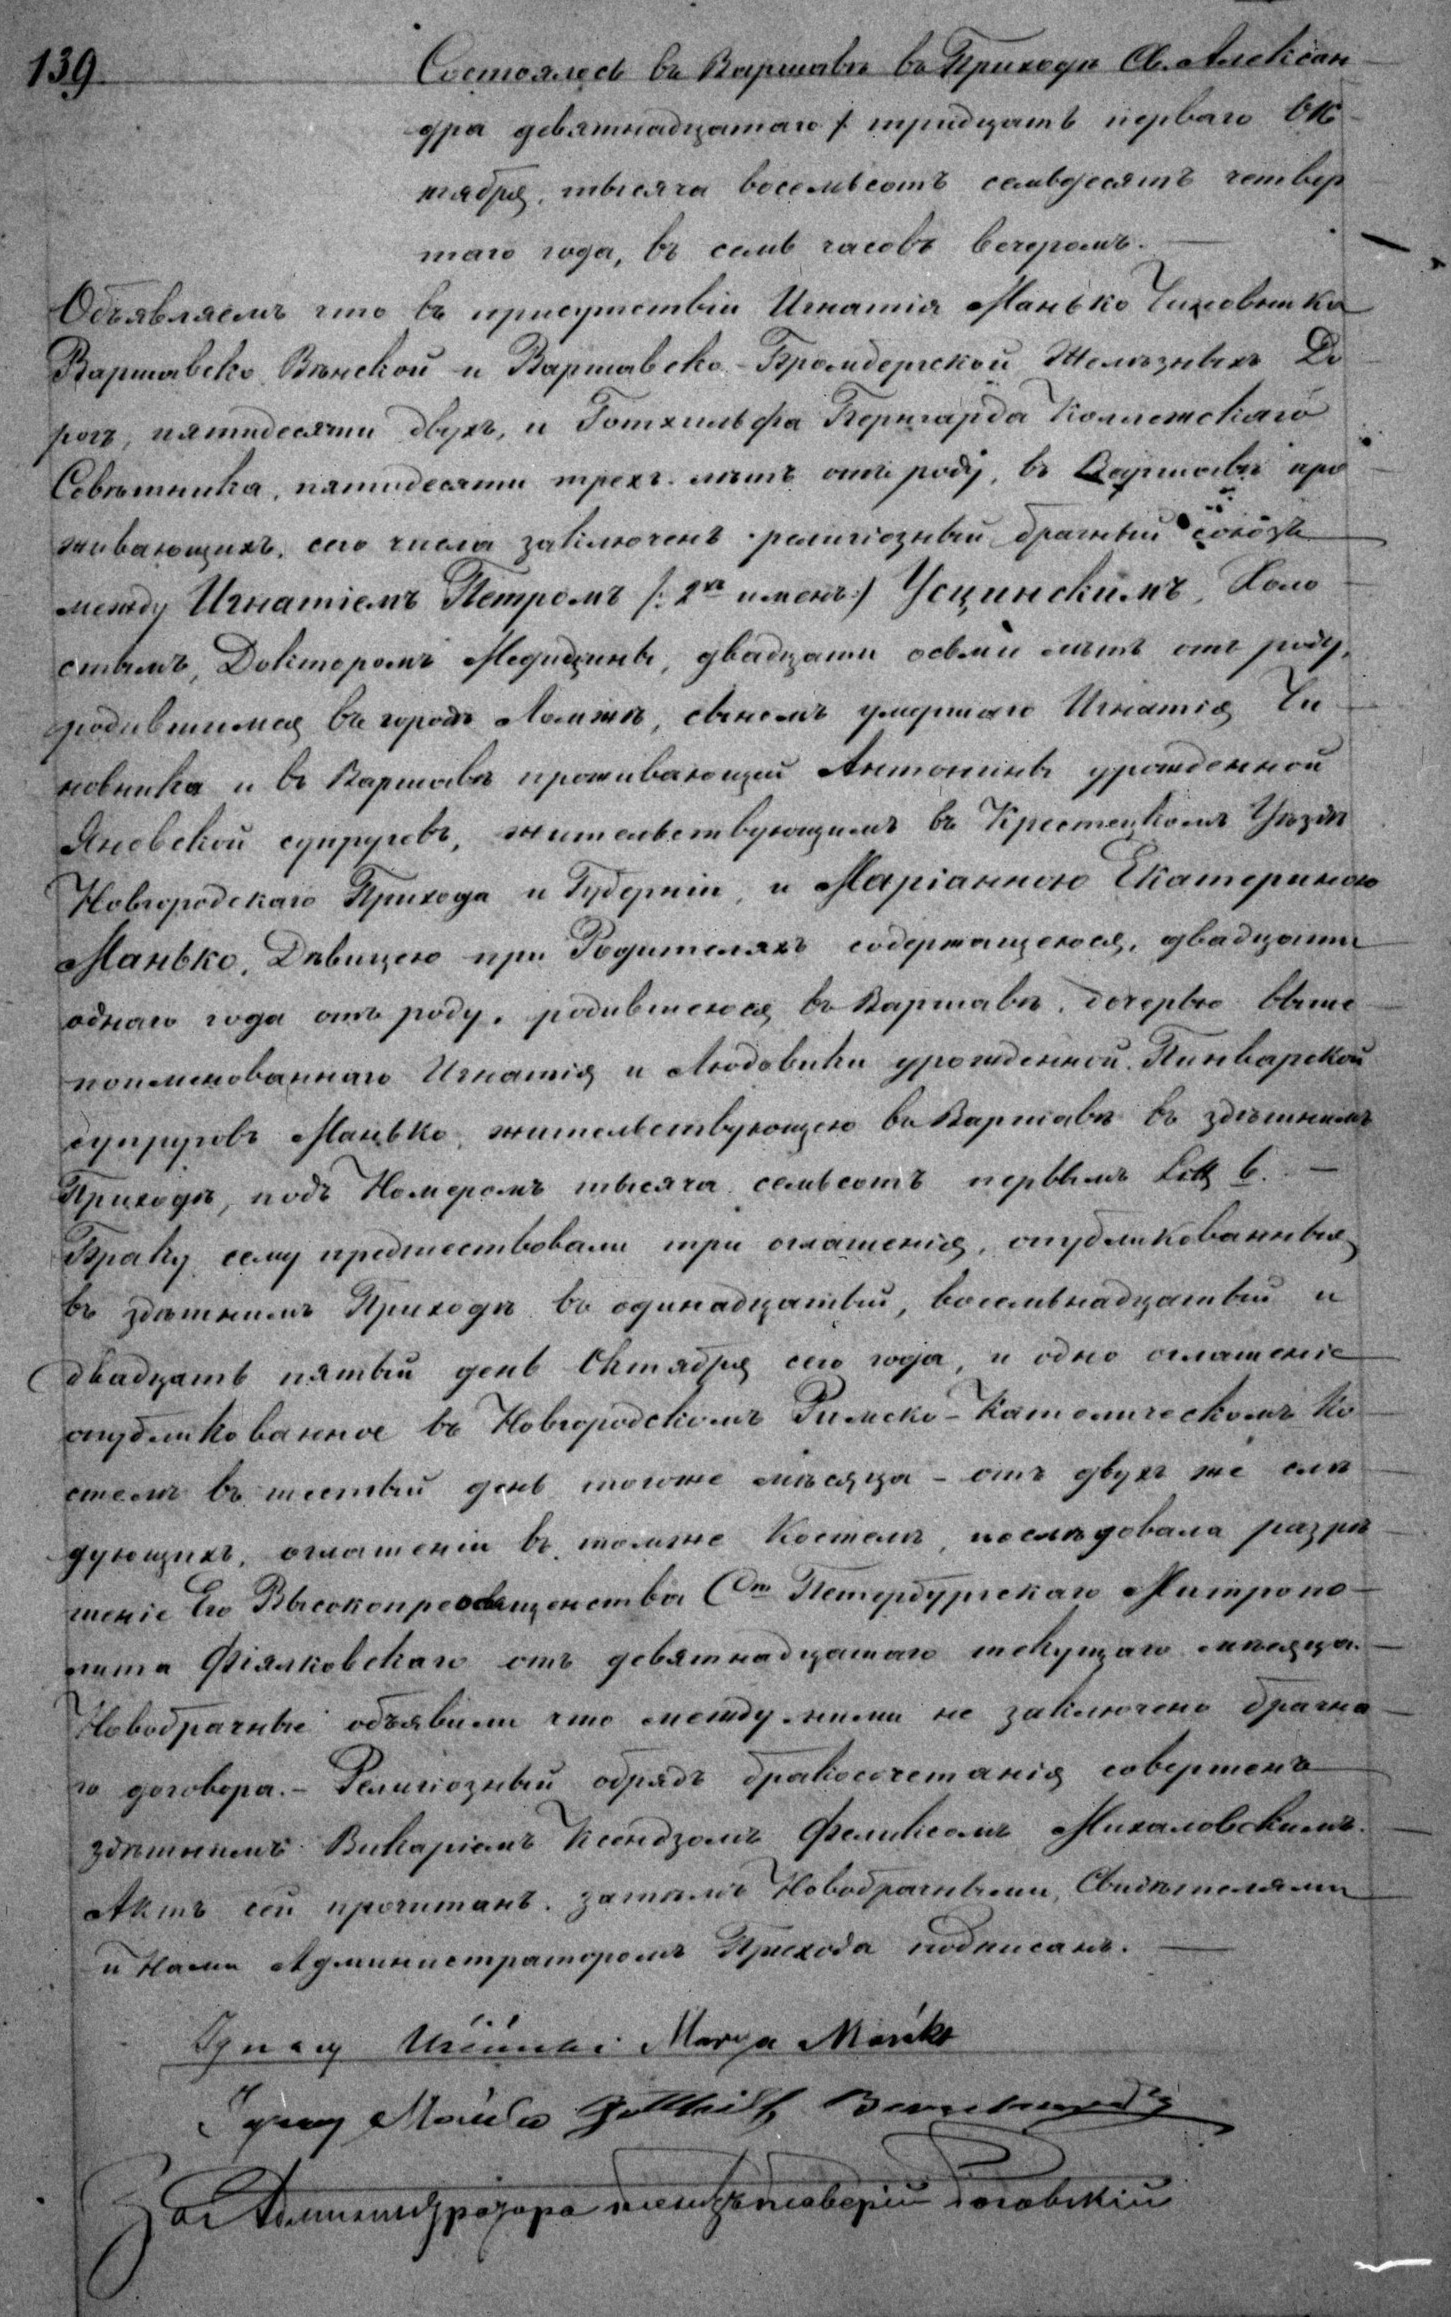 139
Состоялось въ Варшавѣ въ Приходѣ Св. Алексан-
дра девятнадцатаго / тридцать перваго Ок-
тября, тысяча восемьсотъ семьдесятъ четвер
таго года, въ семь часовъ вечеромъ. —
Объявляемъ что въ присутствіи Игнатія Манько Чиновника
Варшавско Вѣнской и Варшавско-Бромбергской Желѣзныхъ До-
рогъ, пятидесяти двухъ, и Готхильфа Бернгарда Коллежскаго
Совѣтника, пятидесяти трехъ лѣтъ отъ роду, въ Варшавѣ про-
живающихъ, сего числа заключенъ религіозный брачный союзъ
между Игнатіемъ Петромъ /: 2хъ именъ :/ Усцинскимъ, Холо-
стымъ, Докторомъ Медицины, двадцати осьми лѣтъ отъ роду,
родившимся въ городѣ Ломжѣ, сыномъ умершаго Игнатія Чи-
новника и въ Варшавѣ проживающей Антонины урожденной
Яновской супруговъ, жительствующимъ въ Крестецкомъ Уѣздѣ
Новгородскаго Прихода и Губерніи, и Маріанною Екатериною
Манько, Дѣвицею при Родителяхъ содержащеюся, двадцати
однаго года отъ роду, родившеюся въ Варшавѣ, дочерью выше-
поименованнаго Игнатія и Людовики урожденной Пинварской
супруговъ Манько, жительствующею въ Варшавѣ въ здѣшнемъ
Приходѣ, подъ Номеромъ тысяча семьсотъ первымъ Litt b. —
Браку сему предшествовали три оглашенія, опубликованныя
въ здѣшнемъ Приходѣ въ одинадцатый, восемьнадцатый и
двадцать пятый день Октября сего года, и одно оглашеніе
опубликованное въ Новгородскомъ Римско-Католическомъ Ко-
стелѣ въ шестый день тогоже мѣсяца - отъ двухъ же слѣ-
дующихъ, оглашеній въ томже Костелѣ, послѣдовала разрѣ-
шеніе Его Высокопреосвященства Стъ Петербургскаго Митропо-
лита Фіялковскаго отъ девятнадцатаго текущаго мѣсяца. —
Новобрачные объявили что между ними не заключено брачна-
го договора. - Религіозный обрядъ бракосочетанія совершенъ
здѣшнимъ Викаріемъ Ксендзомъ Феликсомъ Михаловскимъ. —
Актъ сей прочитанъ. затѣмъ Новобрачными, Свидѣтелями
и Нами Администраторомъ Прихода подписанъ. —
Ignacy Uściński Marya Mańko
Ignacy Mańko Gotthilf Bernhardy
За Администратора